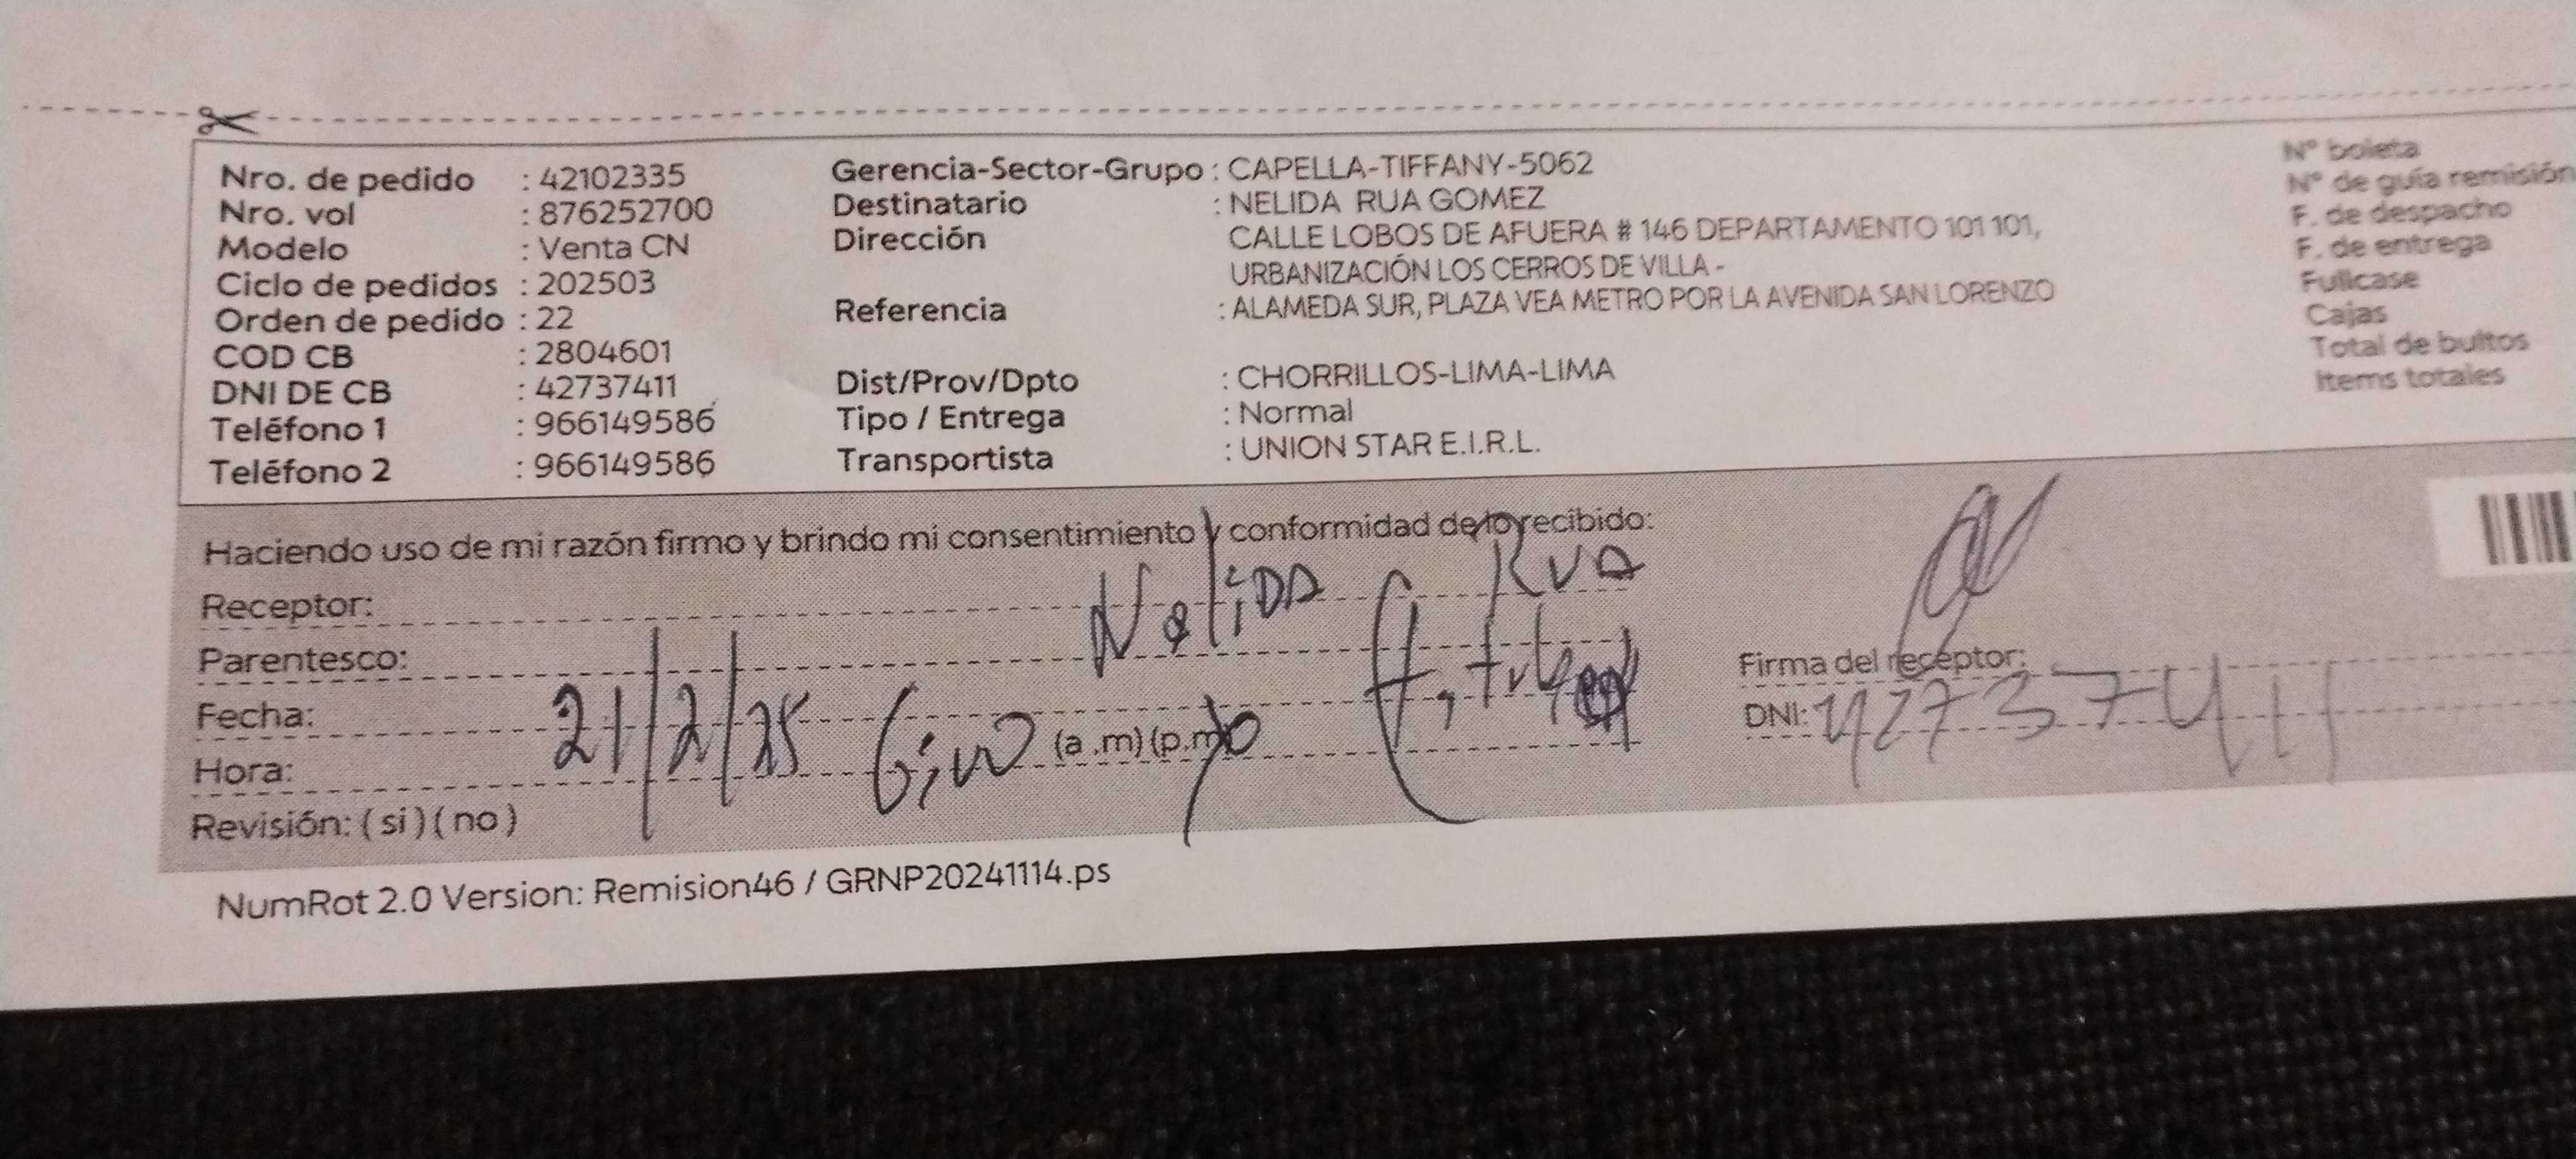 Nro. de pedido : 42102335
Nro. vol : 876252700
Modelo : Venta CN
Ciclo de pedidos : 202503
Orden de pedido : 22
COD CB : 2804601
DNI DE CB : 42737411
Teléfono 1 : 966149586
Teléfono 2 : 966149586
Gerencia-Sector-Grupo : CAPELLA-TIFFANY-5062
Destinatario : NELIDA RUA GOMEZ
Dirección CALLE LOBOS DE AFUERA # 146 DEPARTAMENTO 101 101,
URBANIZACIÓN LOS CERROS DE VILLA -
Referencia : ALAMEDA SUR, PLAZA VEA METRO POR LA AVENIDA SAN LORENZO
Dist/Prov/Dpto : CHORRILLOS-LIMA-LIMA
Tipo / Entrega : Normal
Transportista : UNION STAR E.I.R.L.
N° boleta
N° de guía remisión
F. de despacho
F. de entrega
Fullcase
Cajas
Total de bultos
Items totales
Haciendo uso de mi razón firmo y brindo mi consentimiento y conformidad de lo recibido:
Receptor: Nelida Rua
Parentesco:
Fecha: 21/2/25
Hora: (a .m) (p.m)
Revisión: ( si ) ( no )
Firma del receptor:
DNI: 42737411
NumRot 2.0 Version: Remision46 / GRNP20241114.ps